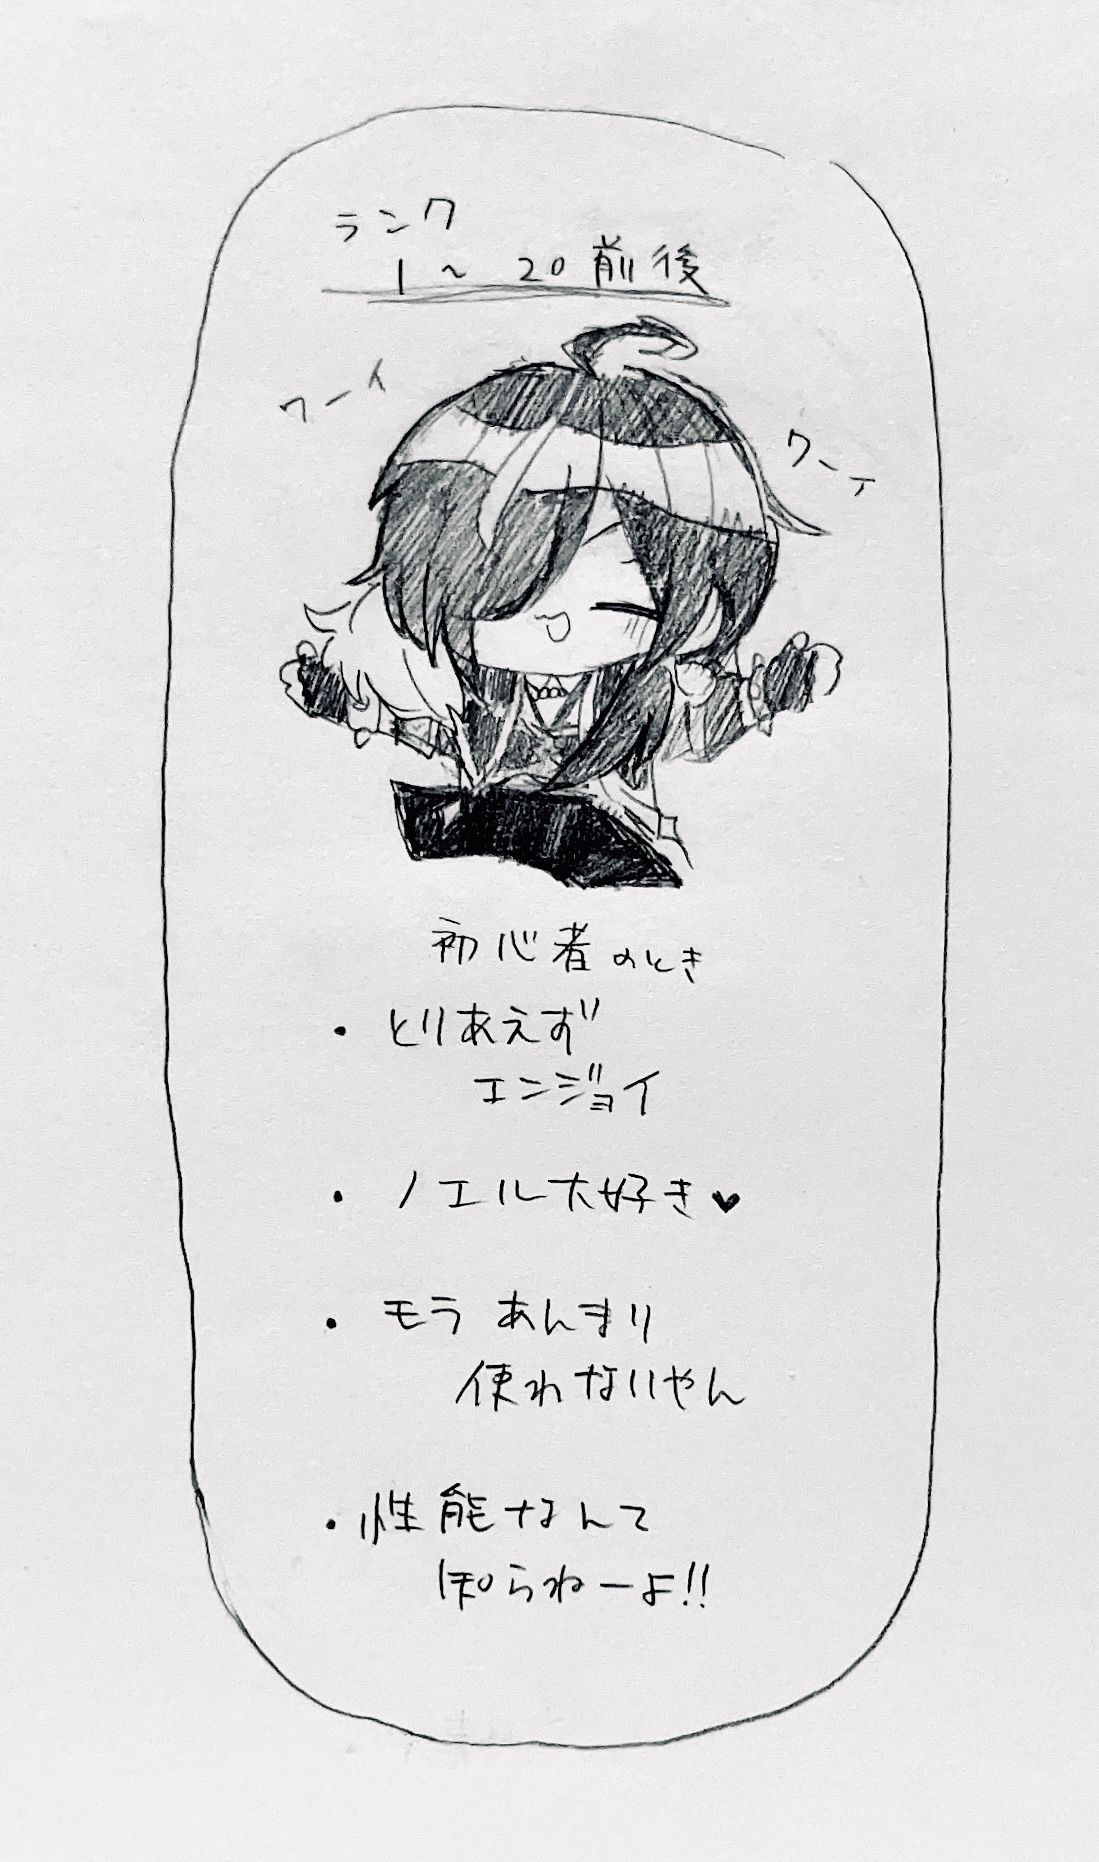 ランク
1～20前後
ワーイ
ワーイ
初心者のとき
・とりあえず
エンジョイ
・ノエル大好き♥
・モラ あんまり
使わないやん
・性能なんて
知らねーよ!!